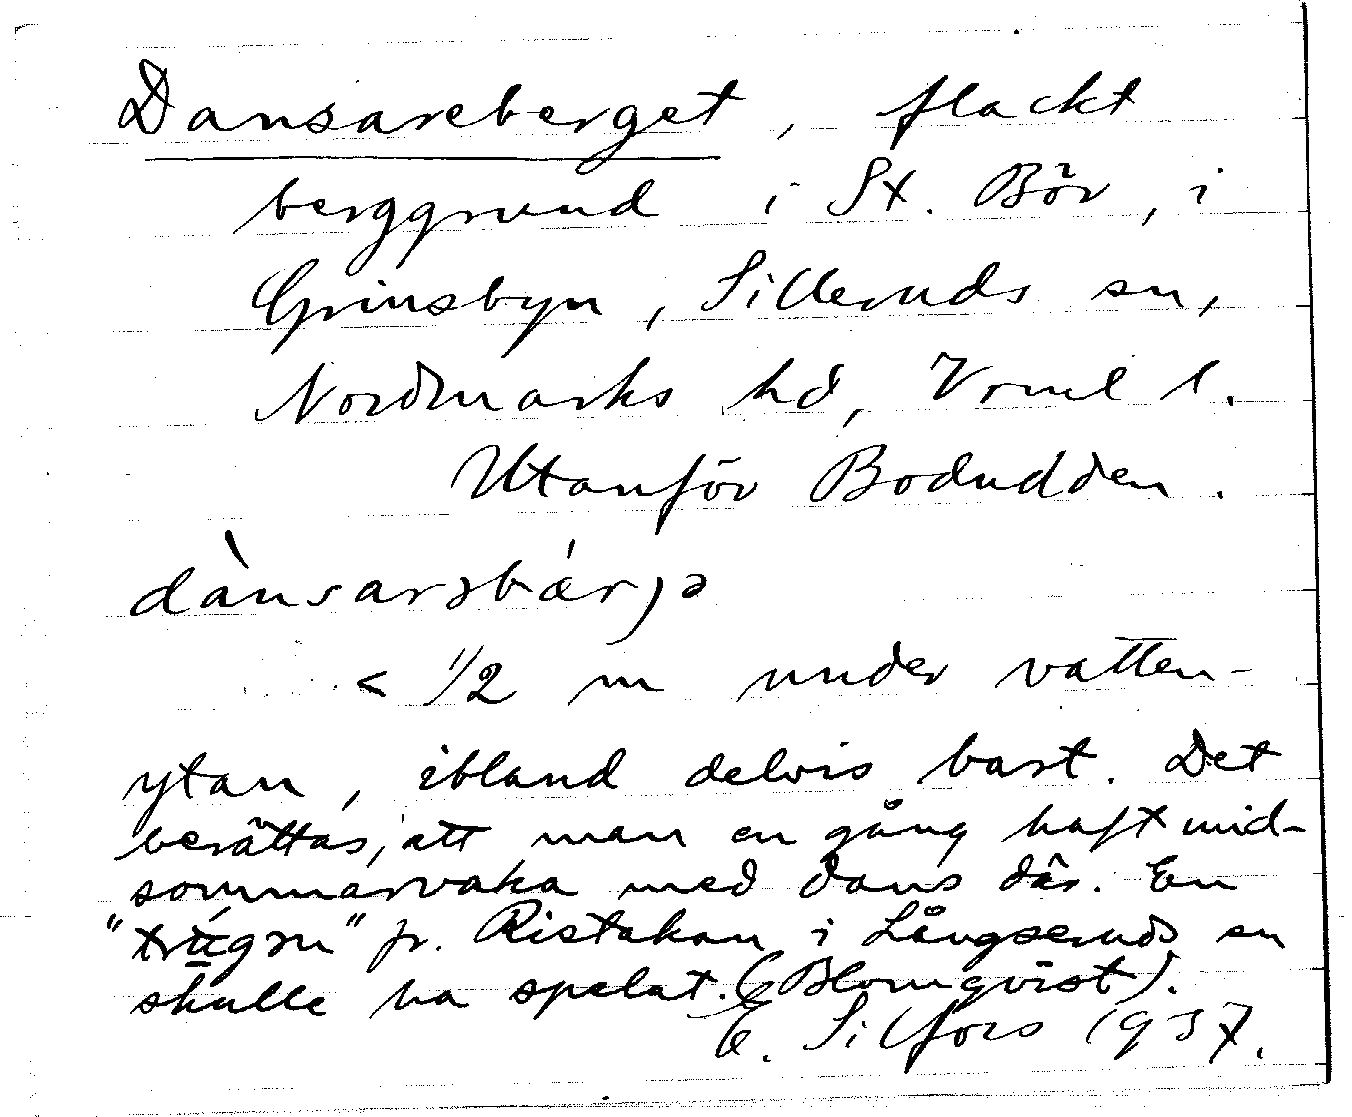 Dansareberget, flackt
berggrund i St. Bör, i
Grinsbyn, Silleruds sn,
Nordmarks hd, Vrml l.
Utanför Bodudden.
< 1/2 m under vatten-
ytan, ibland delvis bart. Det
berättas, att man en gång haft mid-
sommarvaka med dans där. En
fr. Ristakan i Långseruds sn
skulle ha spelat. (Blomqvist).
E. Silfors 1937.